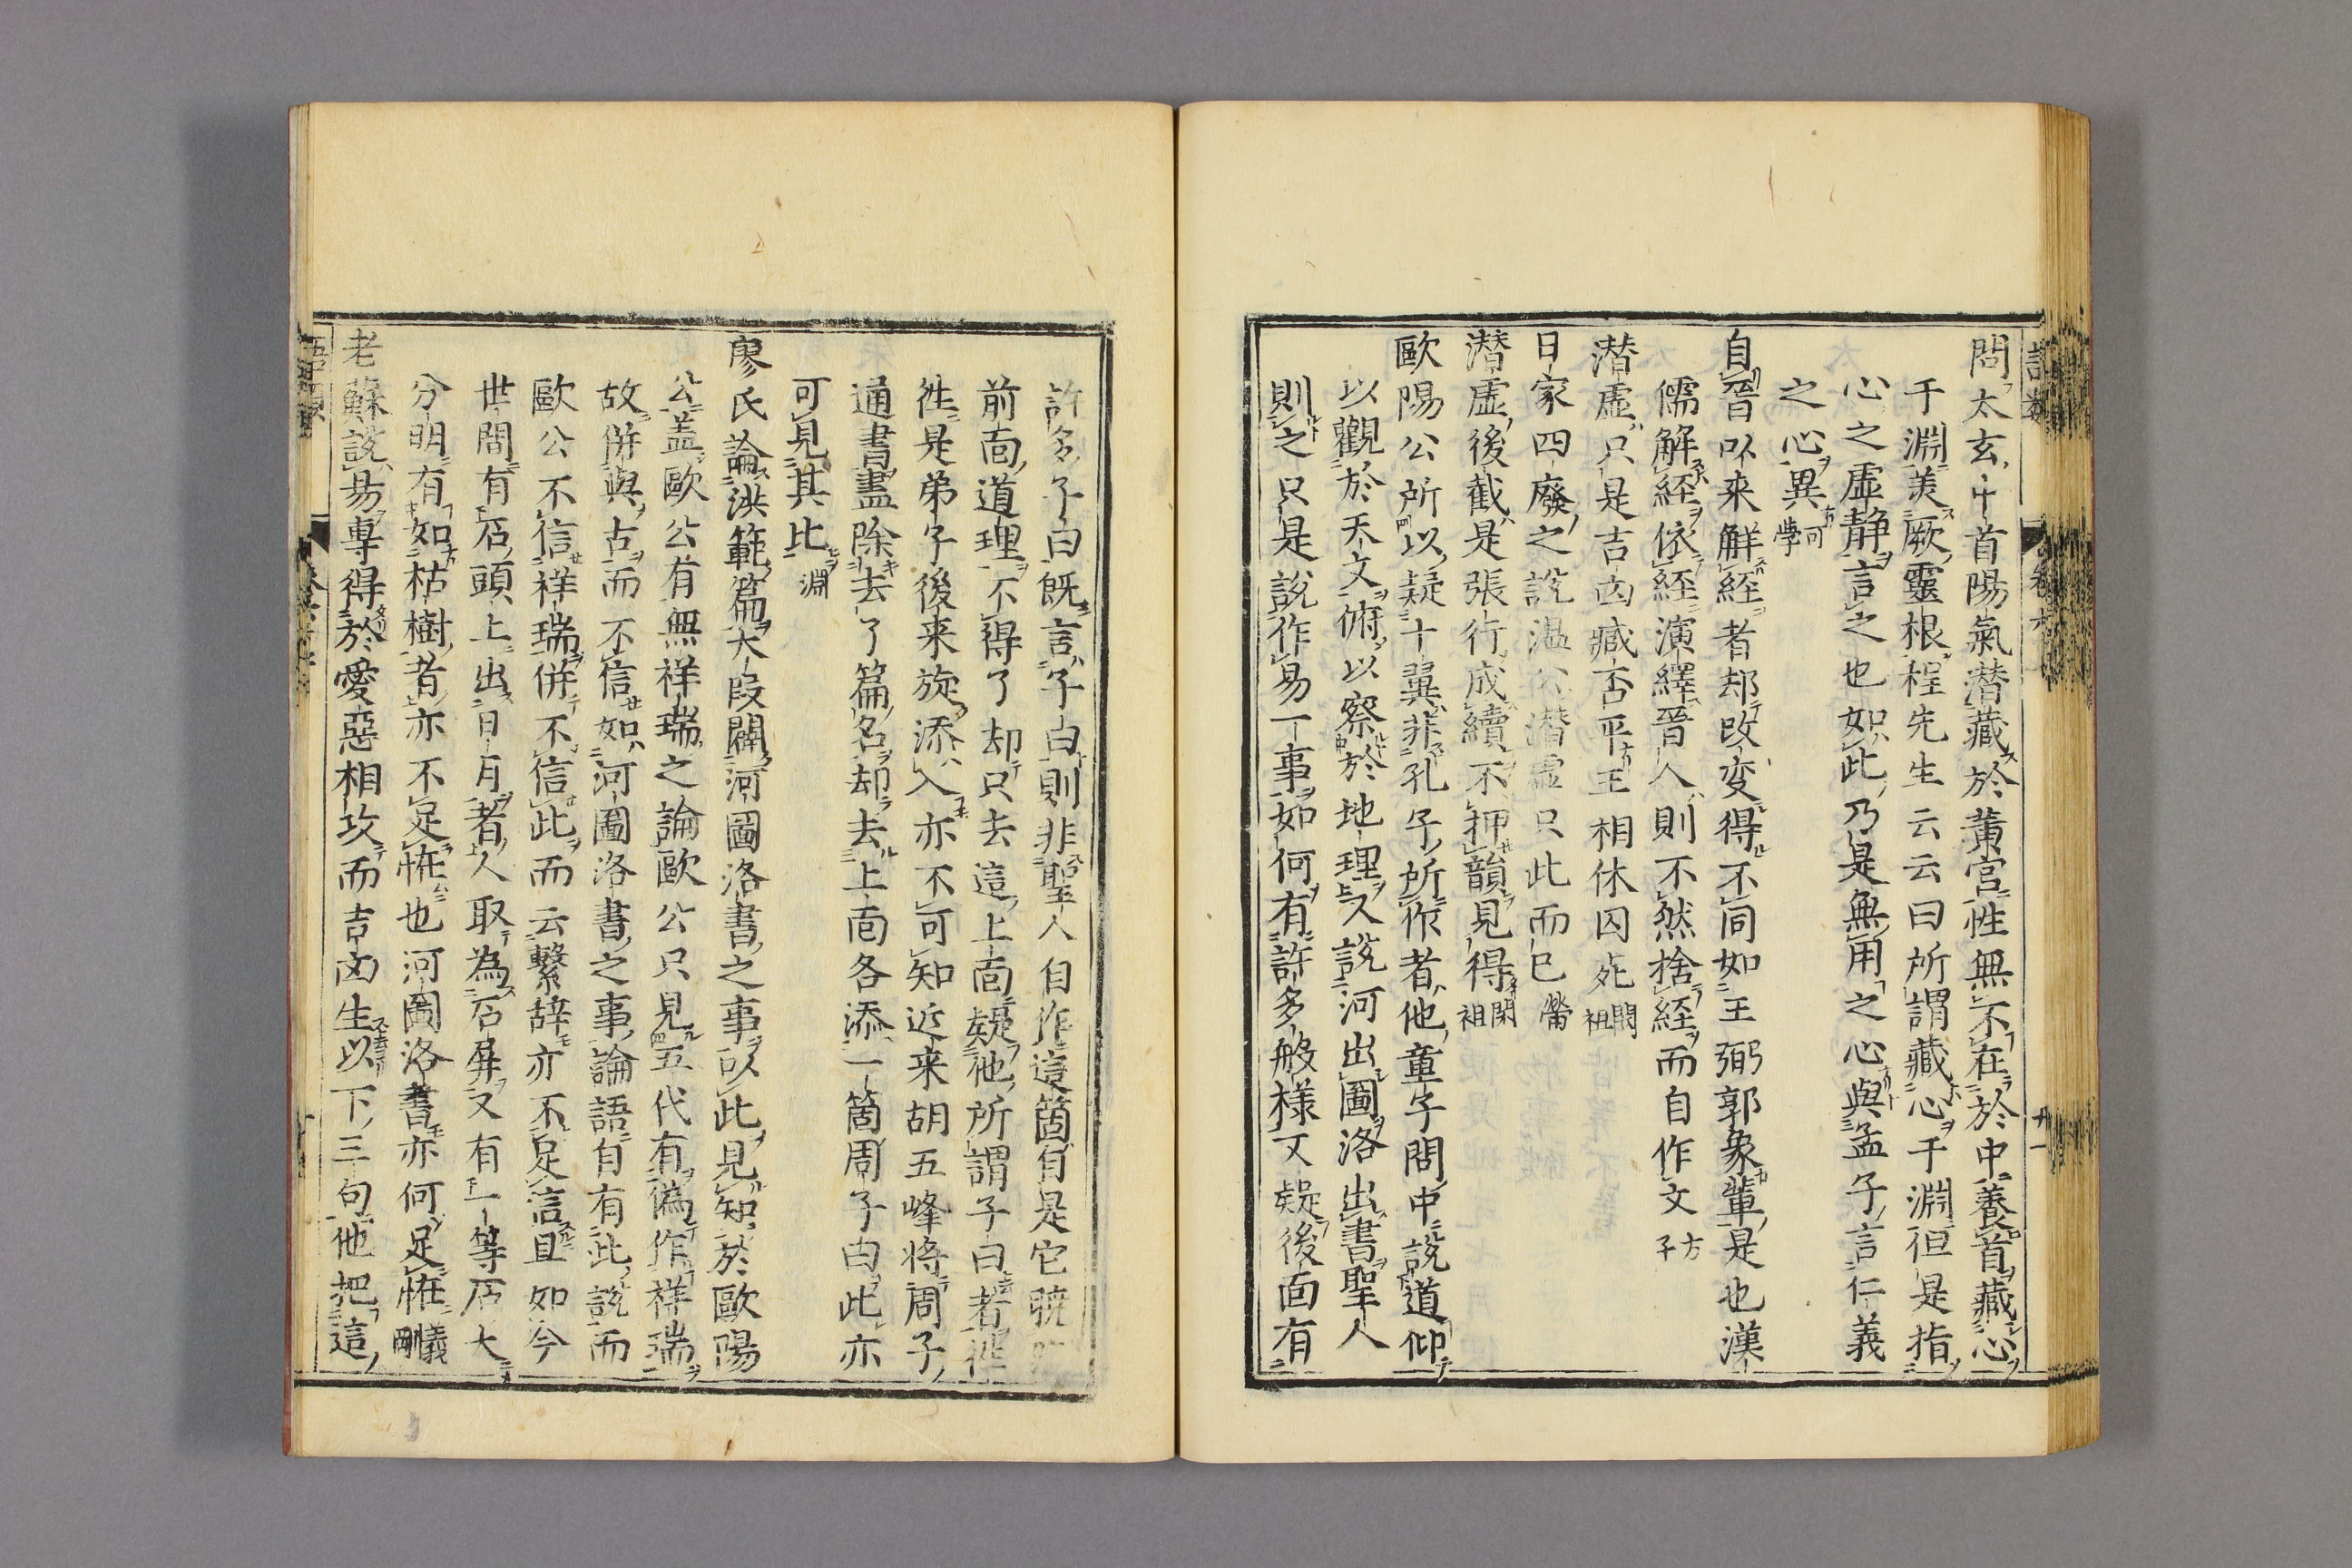 問太玄中首陽氣潜藏於黃宮性無不在於中養首藏心
于淵美厥靈根程先生云云曰所謂藏心于淵但是指
心之虛静言之也如此乃是無用之心與孟子言仁義
之心異可學
自晉以来解經者却改变得不同如王弼郭象輩是也漢
儒解經依經演繹晉人則不然捨經而自作文方子
潜虛只是吉凶臧否平王相休囚死閎祖
日家四廢之說温公潜虛只此而已㽦
潜虛後截是張行成續不押韻見得閎祖
歐陽公所以疑十翼非孔子所作者他童子問中說道仰
以觀於天文俯以察於地理又說河出圖洛出書聖人
則之只是說作易一事如何有許多般樣又疑後面有
許多子曰既言子曰則非聖人自作這箇自是它曉
前面道理不得了却只去這上面疑他所謂子曰者徃
徃是弟子後来旋添入亦不可知近来胡五峰将周子
通書盡除去了篇名却去上面各添一箇周子曰此亦
可見其比淵
廖氏論洪範篇大段闢河圖洛書之事以此見知於歐陽
公盖歐公有無祥瑞之論歐公只見五代有偽作祥瑞
故併與古而不信如河圖洛書之事論語自有此說而
歐公不信祥瑞併不信此而云繫辞亦不足信且如今
世間有石頭上出日月者人取為石屏又有一等石大
分明有如枯樹者亦不足恠也河圖洛書亦何足恠義剛
老蘇說易專得於愛惡相攻而吉凶生以下三句他把這